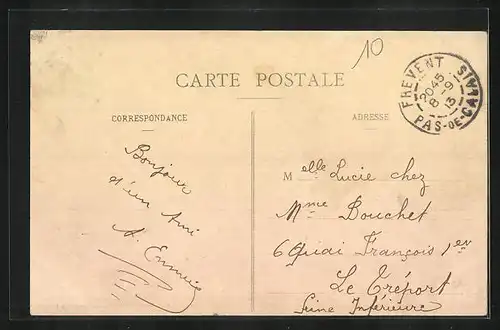 10
CARTE POSTALE
FREVENT
20 45
8 -9
13
PAS-DE-CALAIS
CORRESPONDANCE
ADRESSE
Bonjour
d'un Ami
A.
Melle Lucie chez
Mme Bouchet
6 Quai François 1er
Le Tréport
Seine Inférieure